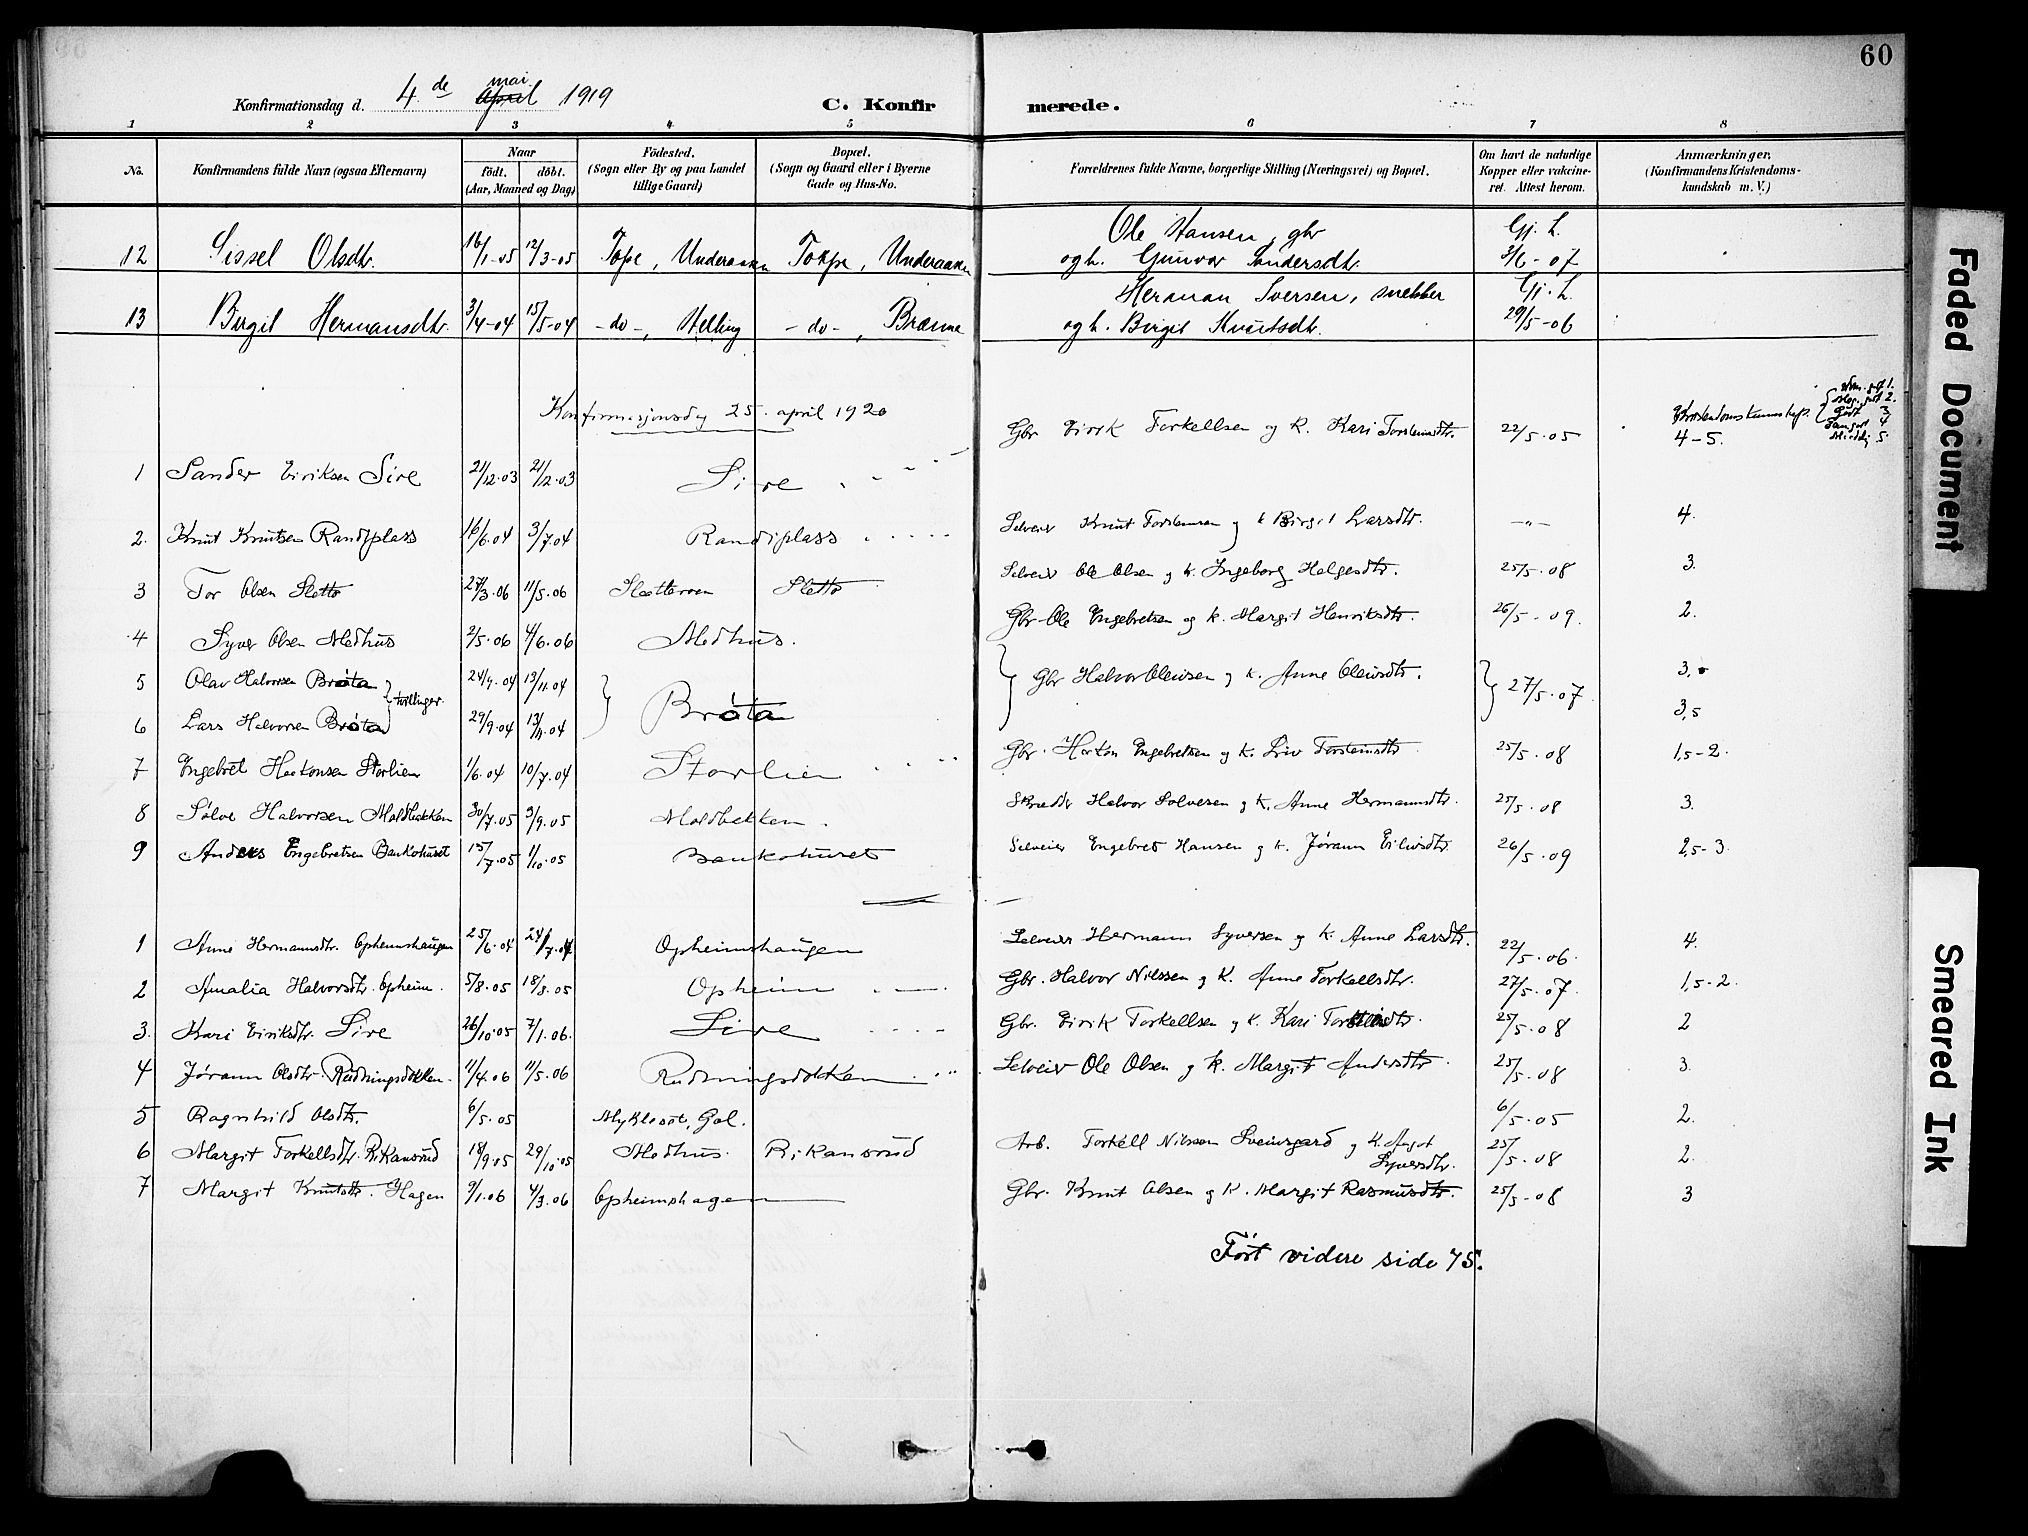 60
Konfirmationsdag d. 4de April mai 1919
C. Konfirmerede.
1 2 3 4 5 6 7 8
No. Konfirmandens fulde Navn (ogsaa Efternavn) Naar født. døbt. (Aar, Maaned og Dag) Fødested. (Sogn eller By og paa Landet tillige Gaard) Bopæl. (Sogn og Gaard eller i Byerne Gade og Hus-No. Forældrenes fulde Navne, borgerlige Stilling (Næringsvei) og Bopæl. Om havt de naturlige Kopper eller vakcineret. Attest herom. Anmærkninger. (Konfirmandens Kristendomskundskab m. V.)
12 Sissel Olsdtr. 16/1-05 12/3-05 Torpe, Underaasen Torpe, Underaasen Ole Hansen, gbr og h. Gunvor Sandersdtr. Gj. L. 3/6-07
13 Birgit Hermansdtr. 3/4-04 15/5-04 -do-, Helling -do-, Brænne Herman Iversen, snekker og h. Birgit Knutsdtr. Gj. L. 29/5-06
Konfirmasjonsdag 25. april 1920
1 Sander Eiriksen Sire 21/12.03 21/12.03 Sire Gbr Eirik Torkellsen og k. Kari Torsteinsdtr. 22/5.05 Kristendomskunnskap. 4-5.
2. Knut Knutsen Randiplass 16/6.04 3/7.04 Randiplass Selveier Knut Torsteinsen og k Birgit Larsdtr. -"- 4.
3 Tor Olsen Sletto 27/3.06 11/5.06 Sletto Selveier Ole Olsen og k. Ingeborg Helgesdtr. 25/5.08 3.
4 Syver Olsen Medhus 2/5.06 4/6.06 Medhus. Gbr Ole Engebretsen og k. Margit Henriksdtr. 26/5-09. 2.
5 Olav Halvorsen Brøta 24/9.04 13/11.04 Brøta Gbr Halvor Oleivsen og k. Anne Oleivsdtr. 27/5.07 3,
tvillinger
6 Lars Halvorsen Brøta 29/9.04 13/11.04 3,5
7 Engebret Haakonsen Storlien 1/6.04 10/7.04 Storlien Gbr. Haakon Engebretsen og k. Liv Torsteinsdtr 25/5.08 1,5-2.
8 Sølve Halvorsen Moldbakken 30/7.05 3/9.05 Moldbekken. Skredder Halvor Solvesen og k. Anne Hermannsdtr. 25/5.08 3.
9 Anders Engebretsen Bankohuset 15/7.05 1/10.05 Bankohuset Selveier Engebret Hansen og k. Jørann Eileivsdtr. 26/5.09 2,5-3.
1 Anne Hermannsdtr. Opheimshaugen 25/6.04 24/7.04 Opheimshaugen Selveier Hermann Syversen og k. Anne Larsdtr. 22/5.06. 4.
2 Amalia Halvorsdtr. Opheim. 5/8.05 18/8.05 Opheim Gbr. Halvor Nilssen og k. Anne Torkellsdtr. 27/5.07. 1,5-2.
3. Kari Eiriksdtr. Sire 26/10.05 7/1.06. Sire Gbr. Eirik Torkellsen og k. Kari Torsteinsdtr. 25/5.08 2
4 Jørann Olsdtr. Rudningsdokken. 11/4.06 11/5.06 Rudningsdokken Selveier Ole Olsen og k. Margit Andersdtr 25/5.08 3.
5 Ragnhild Olsdtr. 6/5.05 Myklesæt, Gol. 6/5.05 2.
6 Margit Torkellsdtr. Rikansrud 18/9.05 29/10.05 Medhus. Rikansrud Arb. Torkell Nilssen Sveinsgard og k. Angot Syversdtr. 25/5.08 2.
7 Margit Knutsdtr. Hagen 9/1.06 4/3.06 Opheimshagen Gbr. Knut Olsen og k. Margit Rasmusdtr. 25/5-08 3
Ført videre side 75.
Faded Document
Smeared Ink